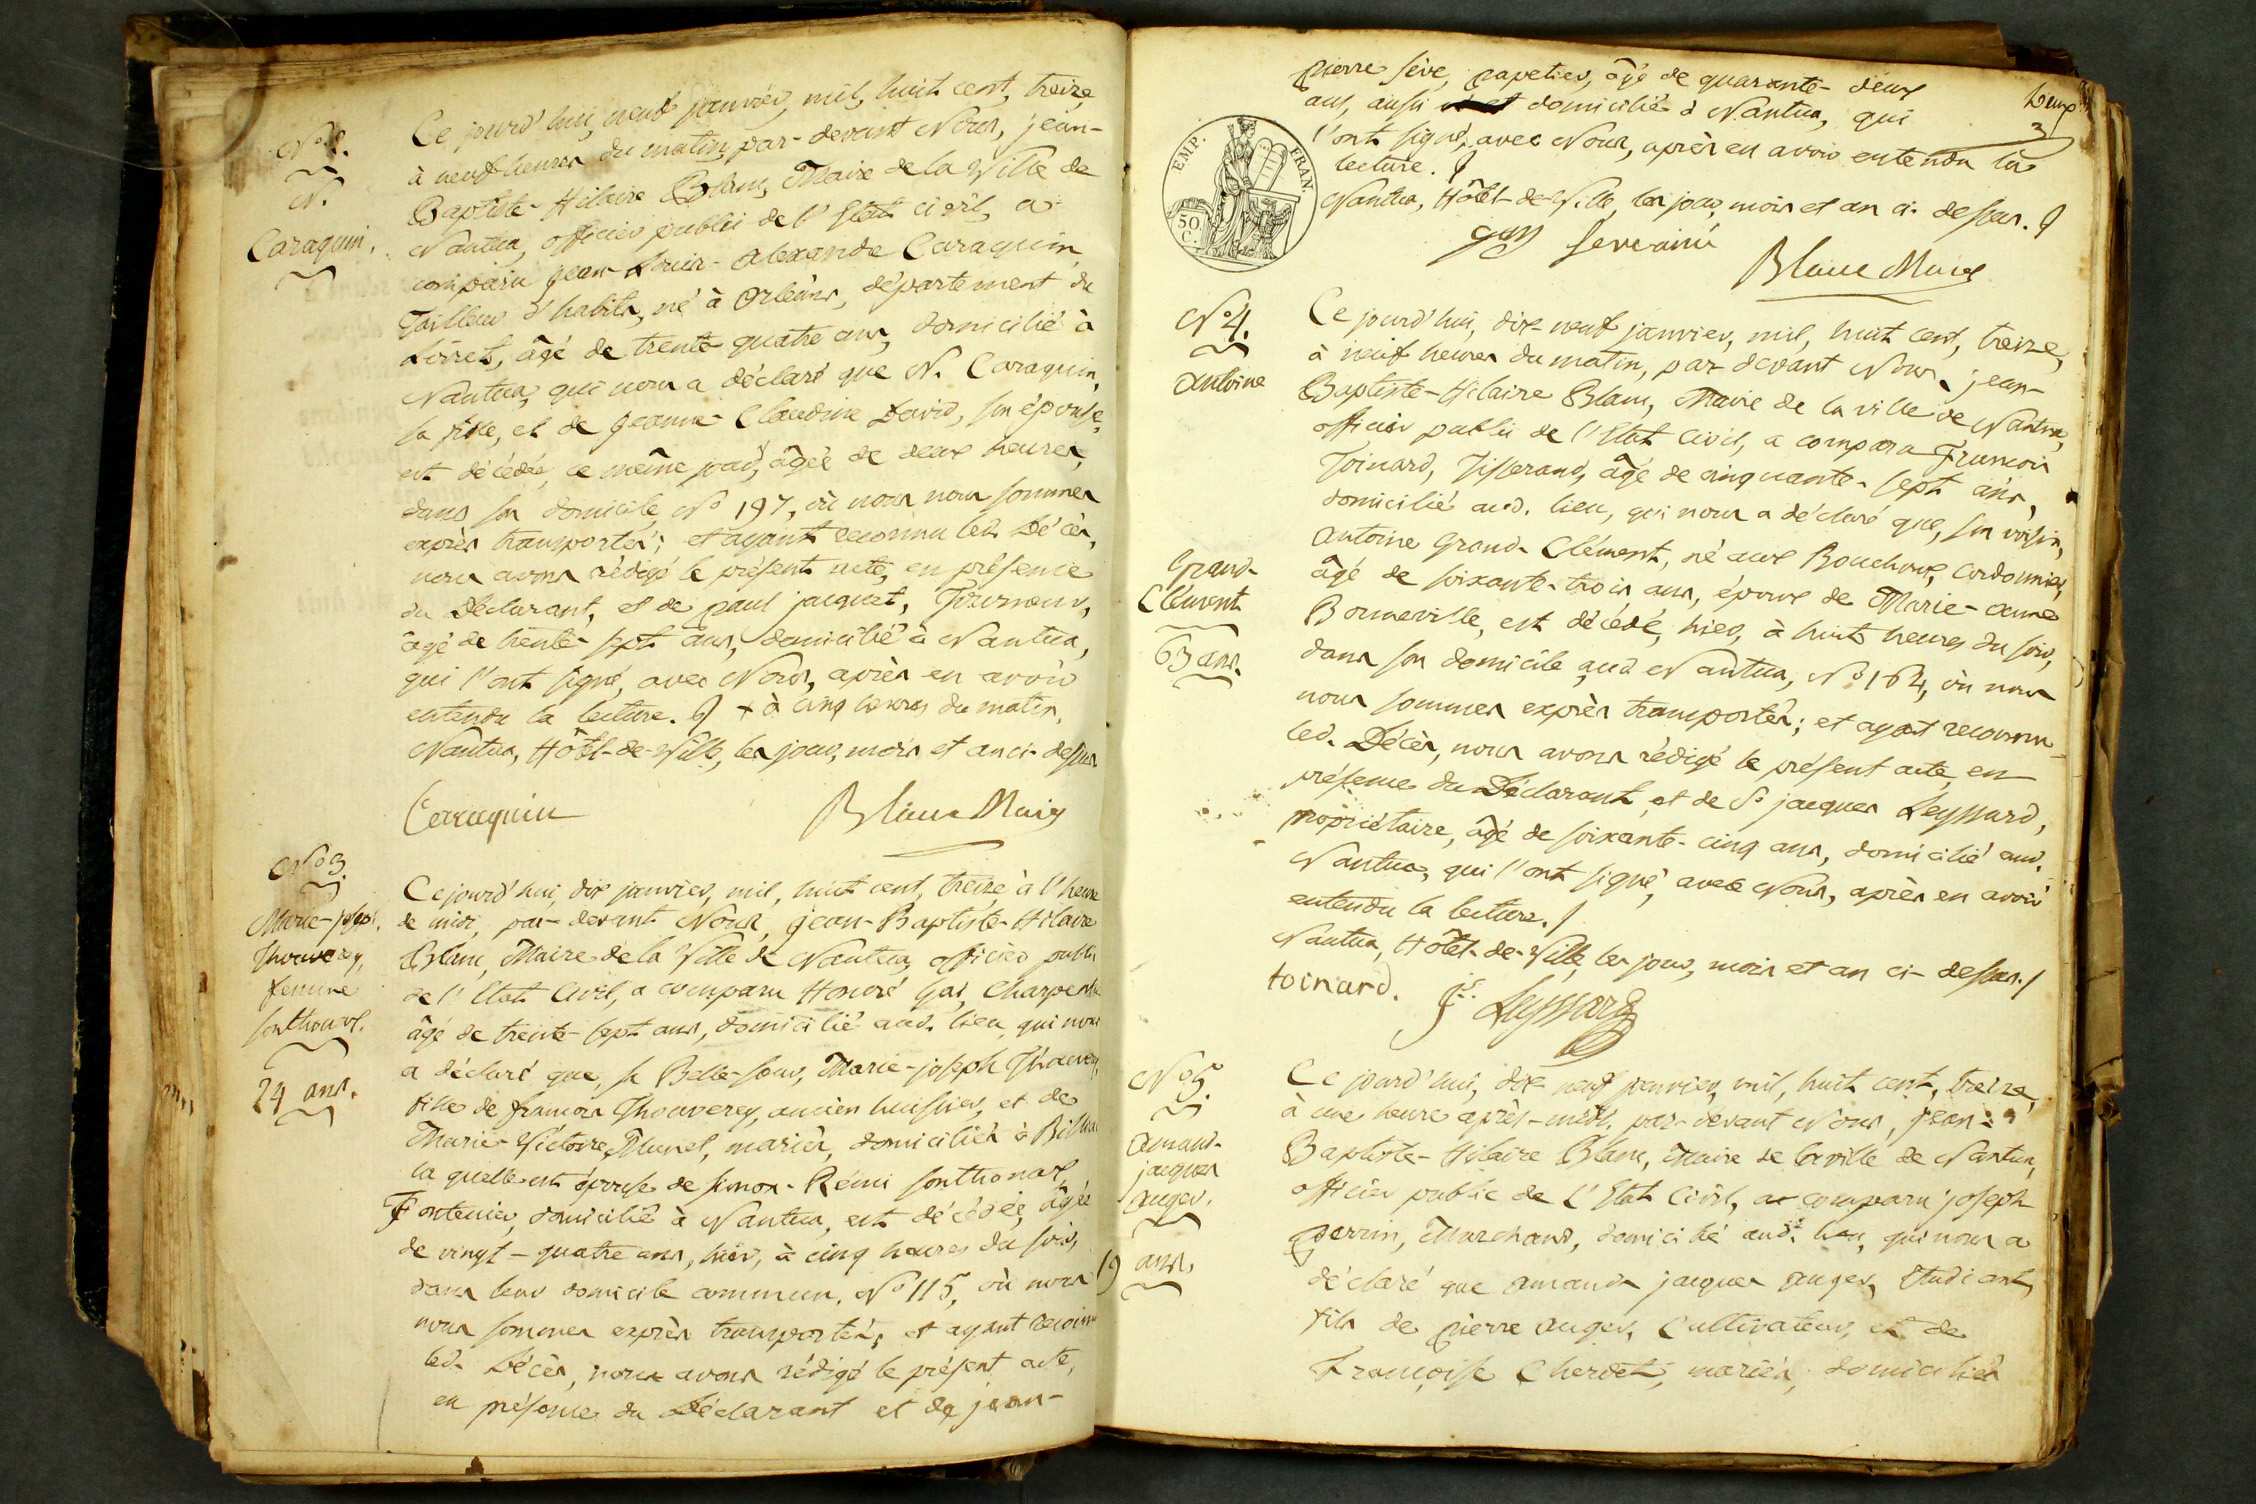 N.º 2.
N.
Caraquin.
Ce jourd'hui, neuf janvier, mil, huit cent, treize,
à neuf heures du matin, par-devant Nous, jean-
Baptiste-Hilaire Blanc, Maire de la Ville de
Nantua, officier public de l'Etat civil, a
comparu jean-Louis-Alexandre Caraquin,
Tailleur d'habits, né à Orléans, département du
Loiret, âgé de trente quatre ans, domicilié à
Nantua, qui nous a déclaré que N. Caraquin,
sa fille, et de jeanne-Claudine David, son épouse,
est décédée, ce même jour, âgée de deux heures,
dans son domicile N.º 197, où nous nous sommes
exprès transportés; et ayant reconnu led. Décès,
nous avons rédigé le présent acte, en présence
du Déclarant, et de paul jacquet, Tourneur,
âgé de trente-sept ans, domicilié à Nantua,
qui l'ont signé, avec Nous, après en avoir
entendu la lecture. + à cinq heures du matin.
Nantua, Hôtel-de-Ville, les jour, mois et an ci-dessus
Caraquin Blanc Maire
N.º 3.
Marie-josph.
Thouverey,
femme
Sonthonax.
24 ans.
Ce jourd'hui, dix janvier, mil, huit cent, treize, à l'heure
de midi, par-devant Nous, jean-Baptiste-Hilaire
Blanc, Maire de la Ville de Nantua, officier public
de l'Etat Civil, a comparu Honoré Gai, Charpentier
âgé de trente-sept ans, domicilié aud. lieu, qui nous
a déclaré que, sa Belle-soeur, Marie-joseph Thouverey,
fille de françois Thouverey, ancien huissier, et de
Marie-Victoire Munet, mariés, domiciliés à
la quelle est épouse de simon-Rémi sonthonax,
Fontenier, domicilié à Nantua, est décédée, âgée
de vingt-quatre ans, hier, à cinq heures du soir,
dans leur domicile commun, N.º 115, où nous
nous sommes exprès transportés; et ayant reconnu
led. Décès, nous avons rédigé le présent acte,
en présence du Déclarant et de jean-
Deux
3
pierre sève, papetier, âgé de quarante-deux
ans, aussi domicilié à Nantua, qui
l'ont signé, avec Nous, après en avoir entendu la
lecture.
Nantua, Hôtel-de-Ville, les jour, mois et an ci-dessus.
gay seve ainé
Blanc Maire
EMP. FRAN.
50 C.
N.º 4.
Antoine
Grand-
Clément
63 ans.
Ce jourd'hui, dix-neuf janvier, mil, huit cent, treize,
à neuf heures du matin, par-devant Nous, jean-
Baptiste-Hilaire Blanc, Maire de la ville de Nantua,
officier public de l'Etat Civil, a comparu François
Toinard, Tisserand, âgé de cinquante-sept ans,
domicilié aud. lieu, qui nous a déclaré que, son voisin,
Antoine Grand-Clément, né aux Bouchoux, Cordonnier,
âgé de soixante-trois ans, époux de Marie-anne
Bonneville, est décédé, hier, à huit heures du soir,
dans son domicile aud. Nantua, N.º 164, où nous
nous sommes exprès transportés; et ayant reconnu
led. Décès, nous avons rédigé le présent acte, en
présence du Déclarant, et de Sr jacques Leyssard,
propriétaire, âgé de soixante-cinq ans, domicilié aud.
Nantua, qui l'ont signé, avec Nous, après en avoir
entendu la lecture.
Nantua, Hôtel-de-Ville, les jour, mois et an ci-dessus.
toinard. Leyssard
N.º 5.
Amand-
jacques
auger.
19 ans.
Ce jourd'hui, dix-neuf janvier, mil, huit cent, treize,
à une heure après-midi, par-devant Nous, jean-
Baptiste-Hilaire Blanc, Maire de la ville de Nantua,
officier public de l'Etat Civil, a comparu joseph
perrin, Marchand, domicilié aud. lieu, qui nous a
déclaré que amand jacques auger, Etudiant,
fils de pierre auger, Cultivateur, et de
Françoise Chervet, mariés, domiciliés